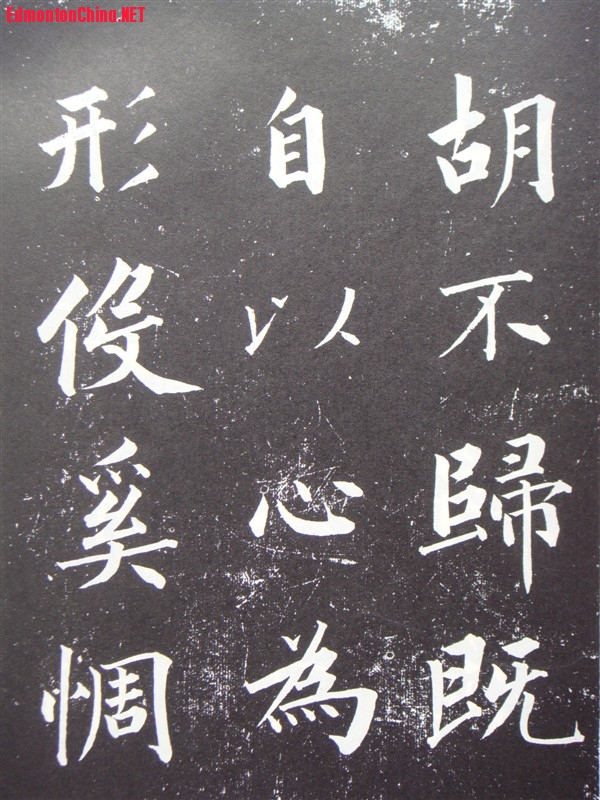 EdmontonChina.NET
胡不歸既
自以心為
形伇奚惆